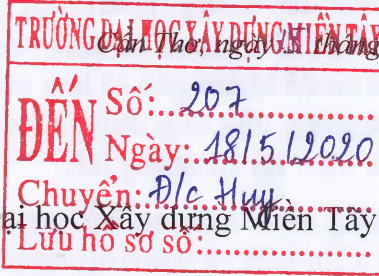 TRƯỜNG ĐẠI HỌC XÂY DỰNG MIỀN TÂY
Cần Thơ, ngày tháng
ĐẾN
Số: 207
Ngày: 18/5/2020
Chuyển: Đ/c Huy
ại học Xây dựng Miền Tây
Lưu hồ sơ số: